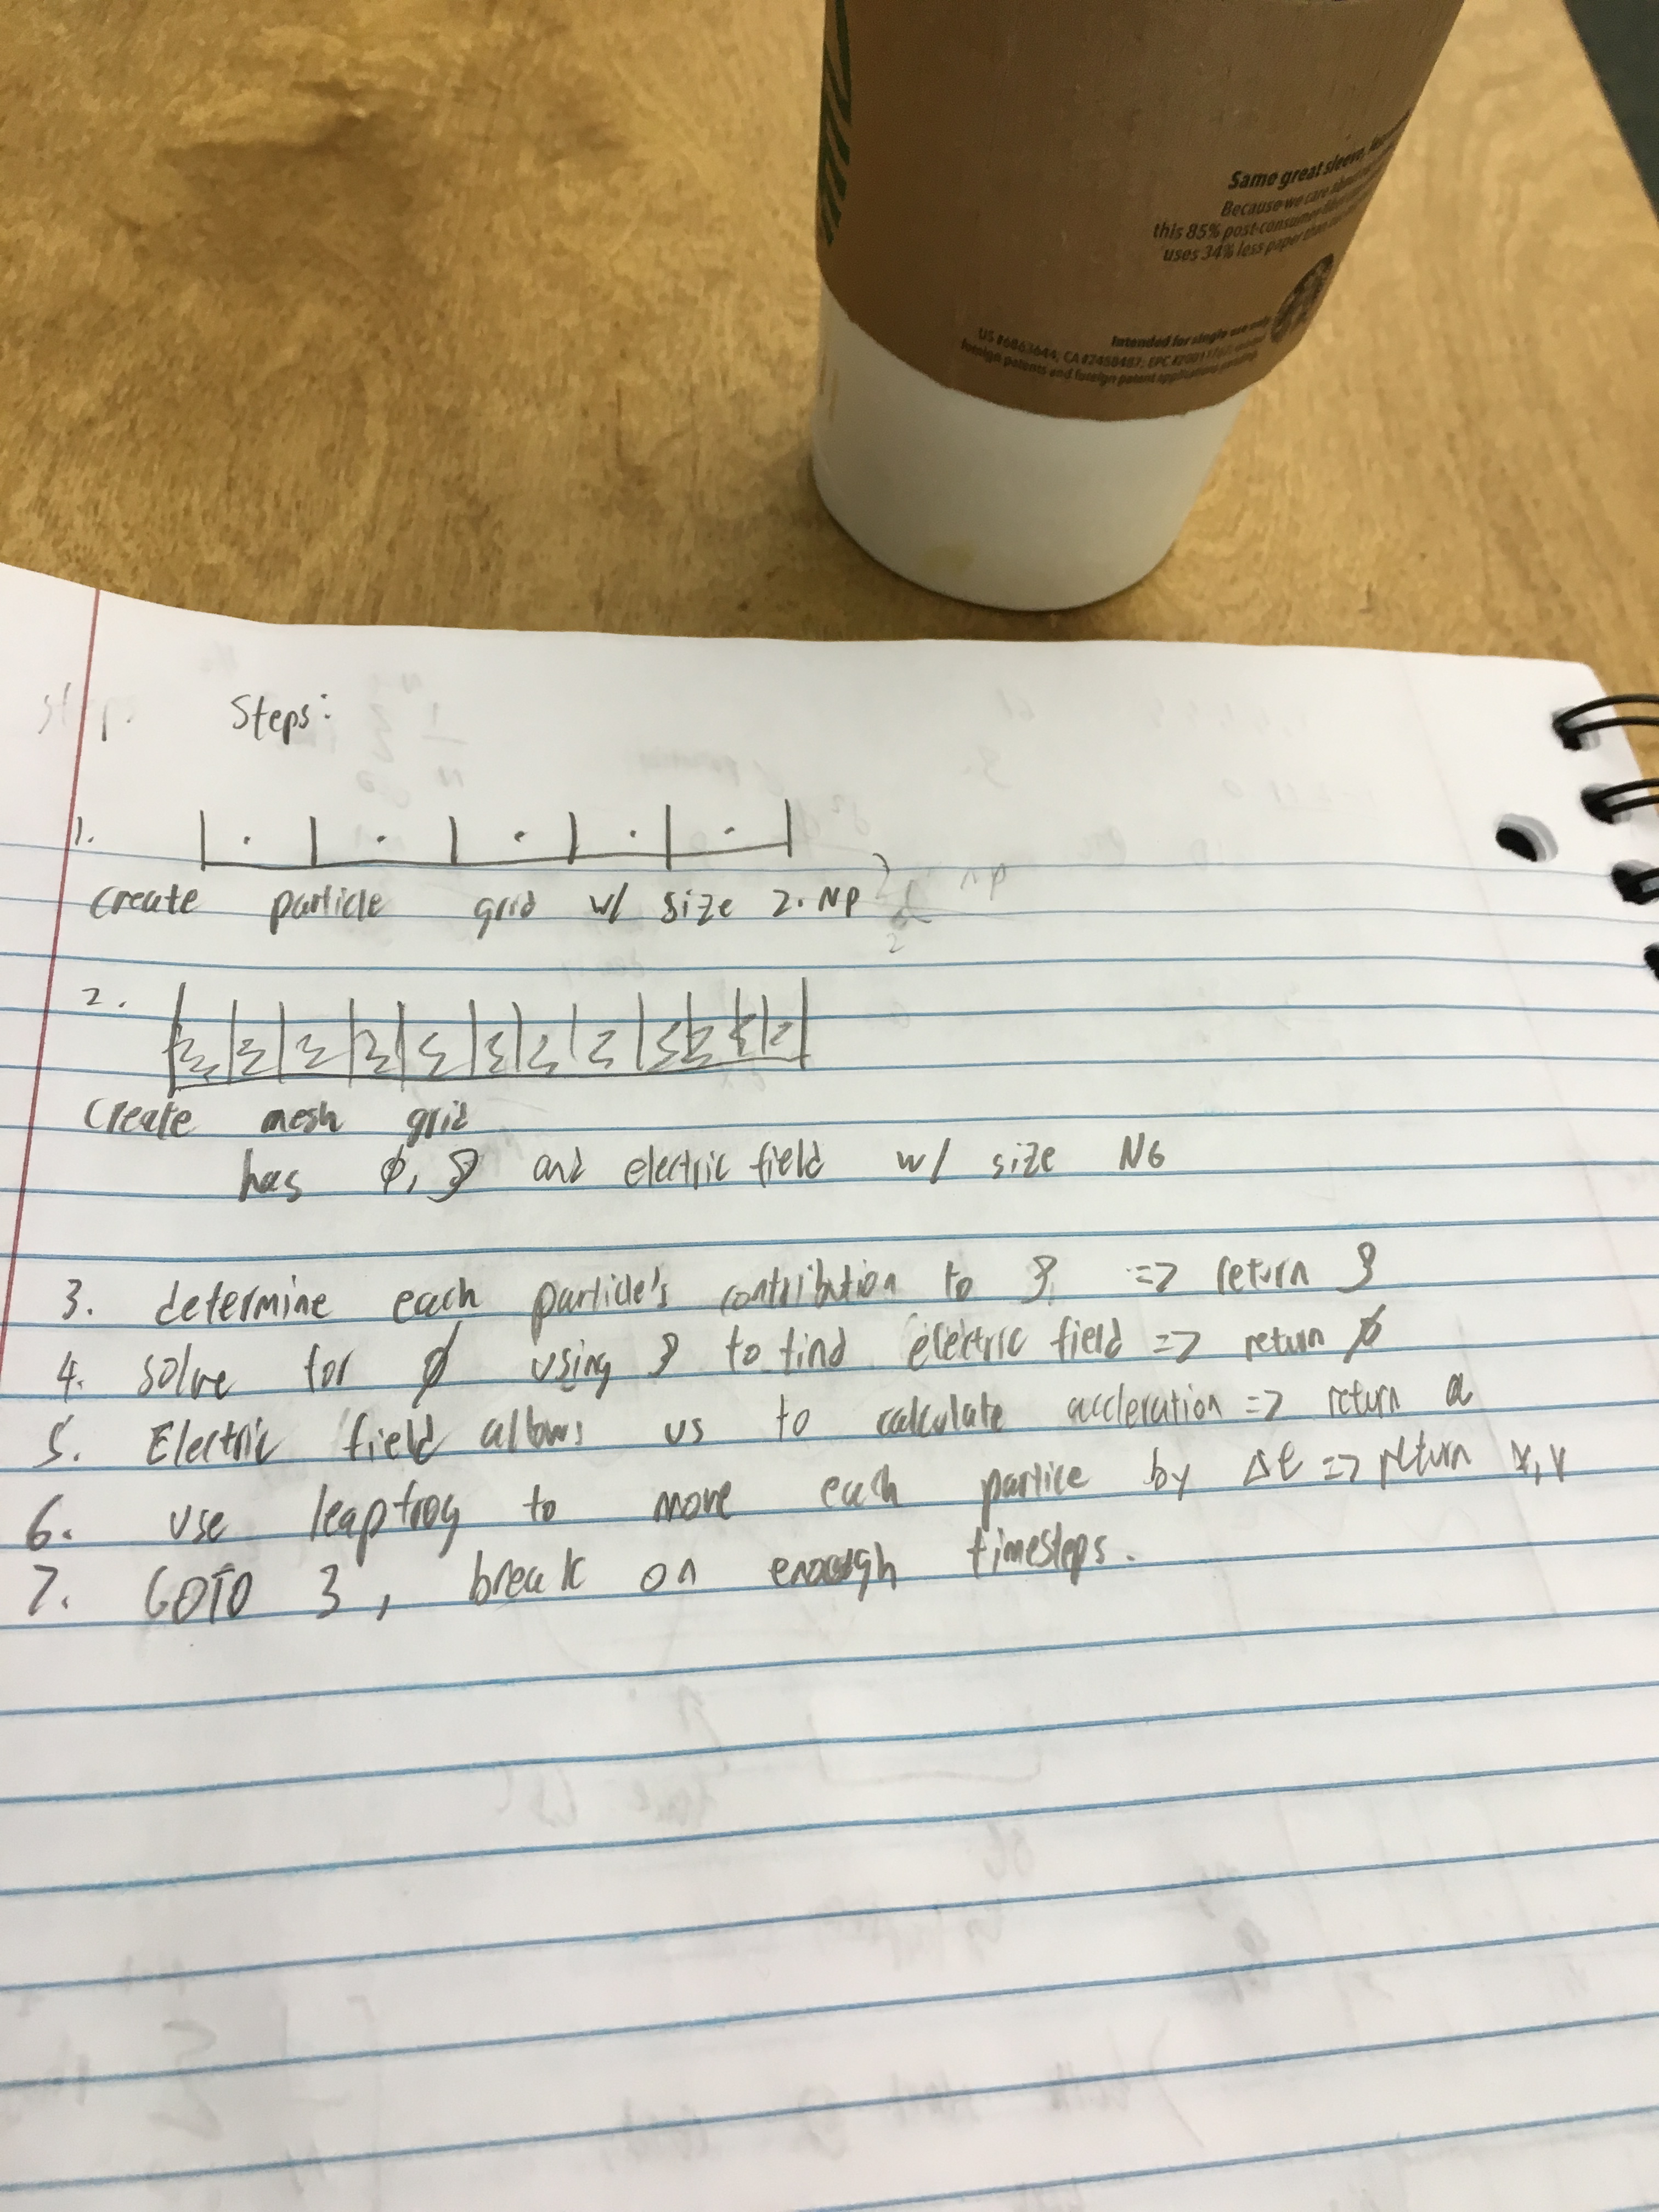 Same great sleeve,
Because we care
this 85% post-consumer fiber
uses 34% less paper than
Intended for single use only
US #6863644, CA #2458487; EPC
foreign patents and foreign patent applications pending
Steps:
1.
create particle grid w/ size 2. NP
2.
Create mesh grid
has φ, ρ and electric field w/ size NG
3. determine each particle's contribution to ρ. => return ρ
4. solve for φ using ρ to find electric field => return φ
5. Electric field allows us to calculate accleration => return a
6. use leapfrog to move each partice by Δt => return x, v
7. GOTO 3, break on enough timesteps.